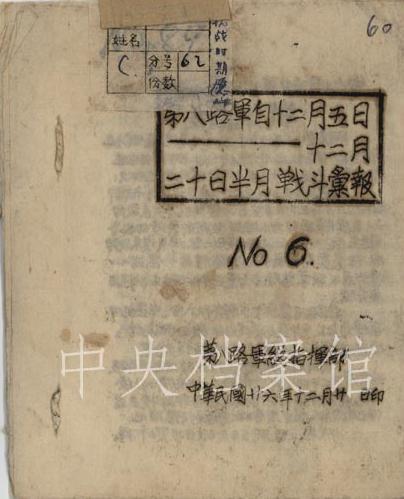 60
姓名
C
分号 62
份数
抗战时期
第八路軍自十二月五日
十二月
二十日半月戦斗彙報
No 6.
第八路軍總指揮部
中央档案馆
中華民國廿六年十二月廿 日印